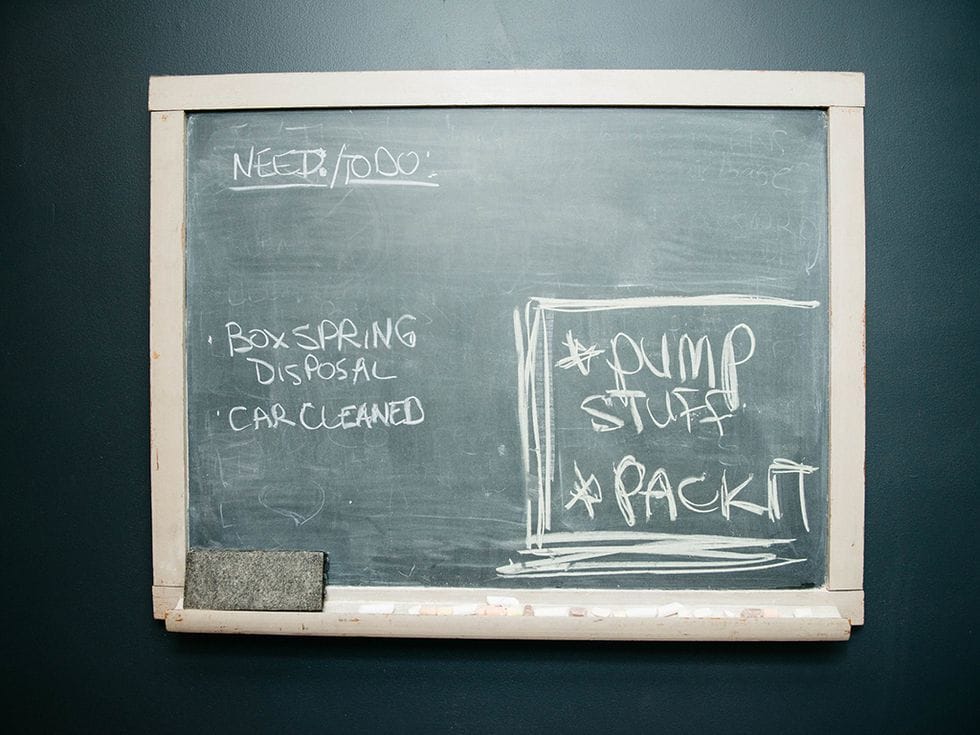 NEED:/TODO:
· BOXSPRING
DISPOSAL
· CAR CLEANED
* PUMP
STUFF
* PACK IT